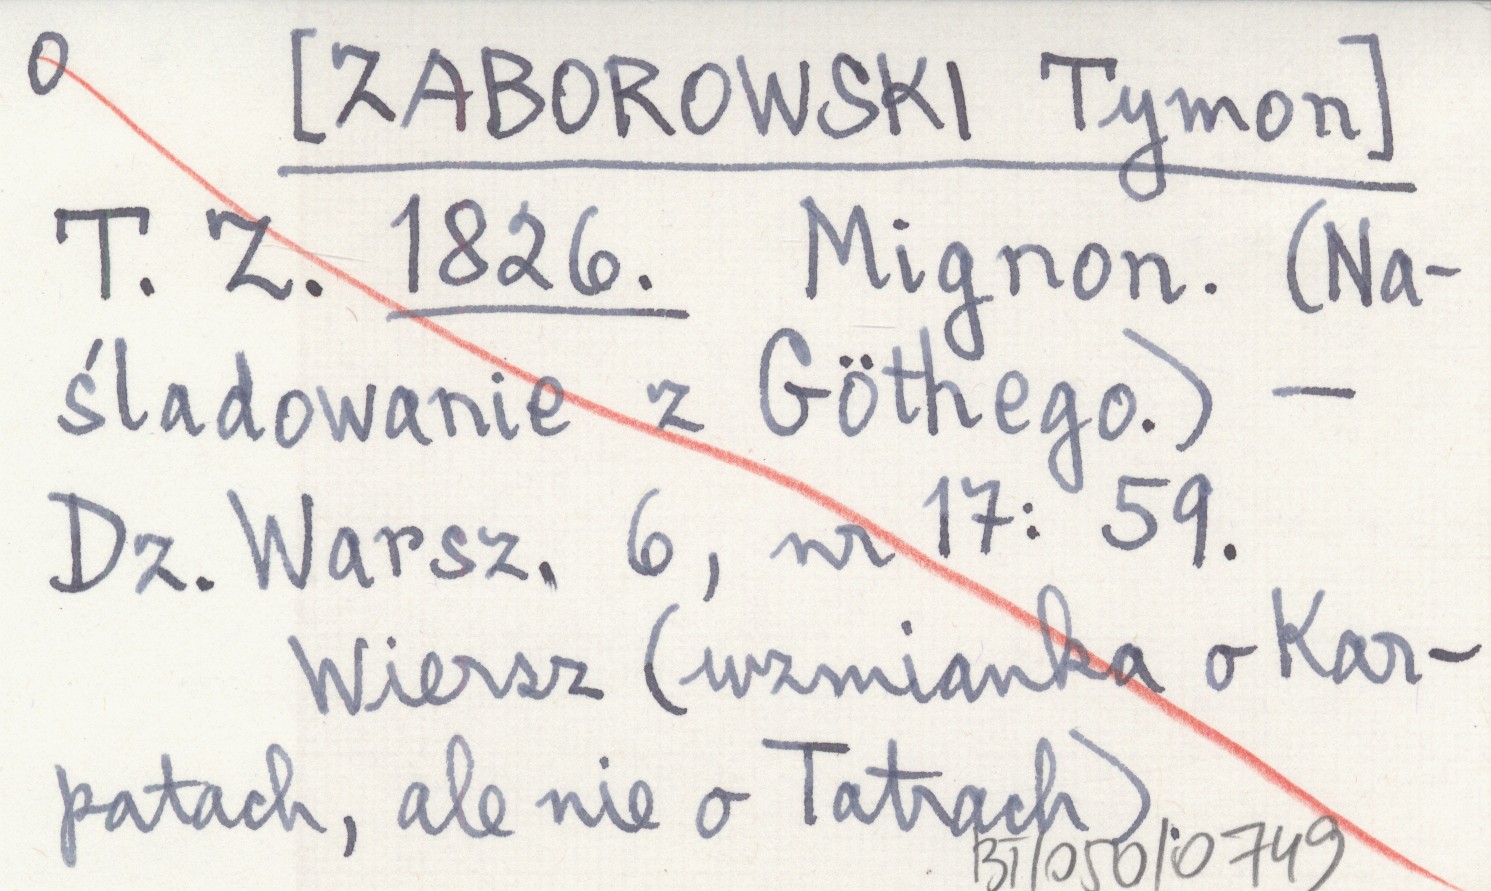 0
[ZABOROWSKI Tymon]
T. Z. 1826. Mignon. (Na-
śladowanie z Göthego.) —
Dz. Warsz. 6, nr 17: 59.
Wiersz (wzmianka o Kar-
patach, ale nie o Tatrach).
BT/050/0749